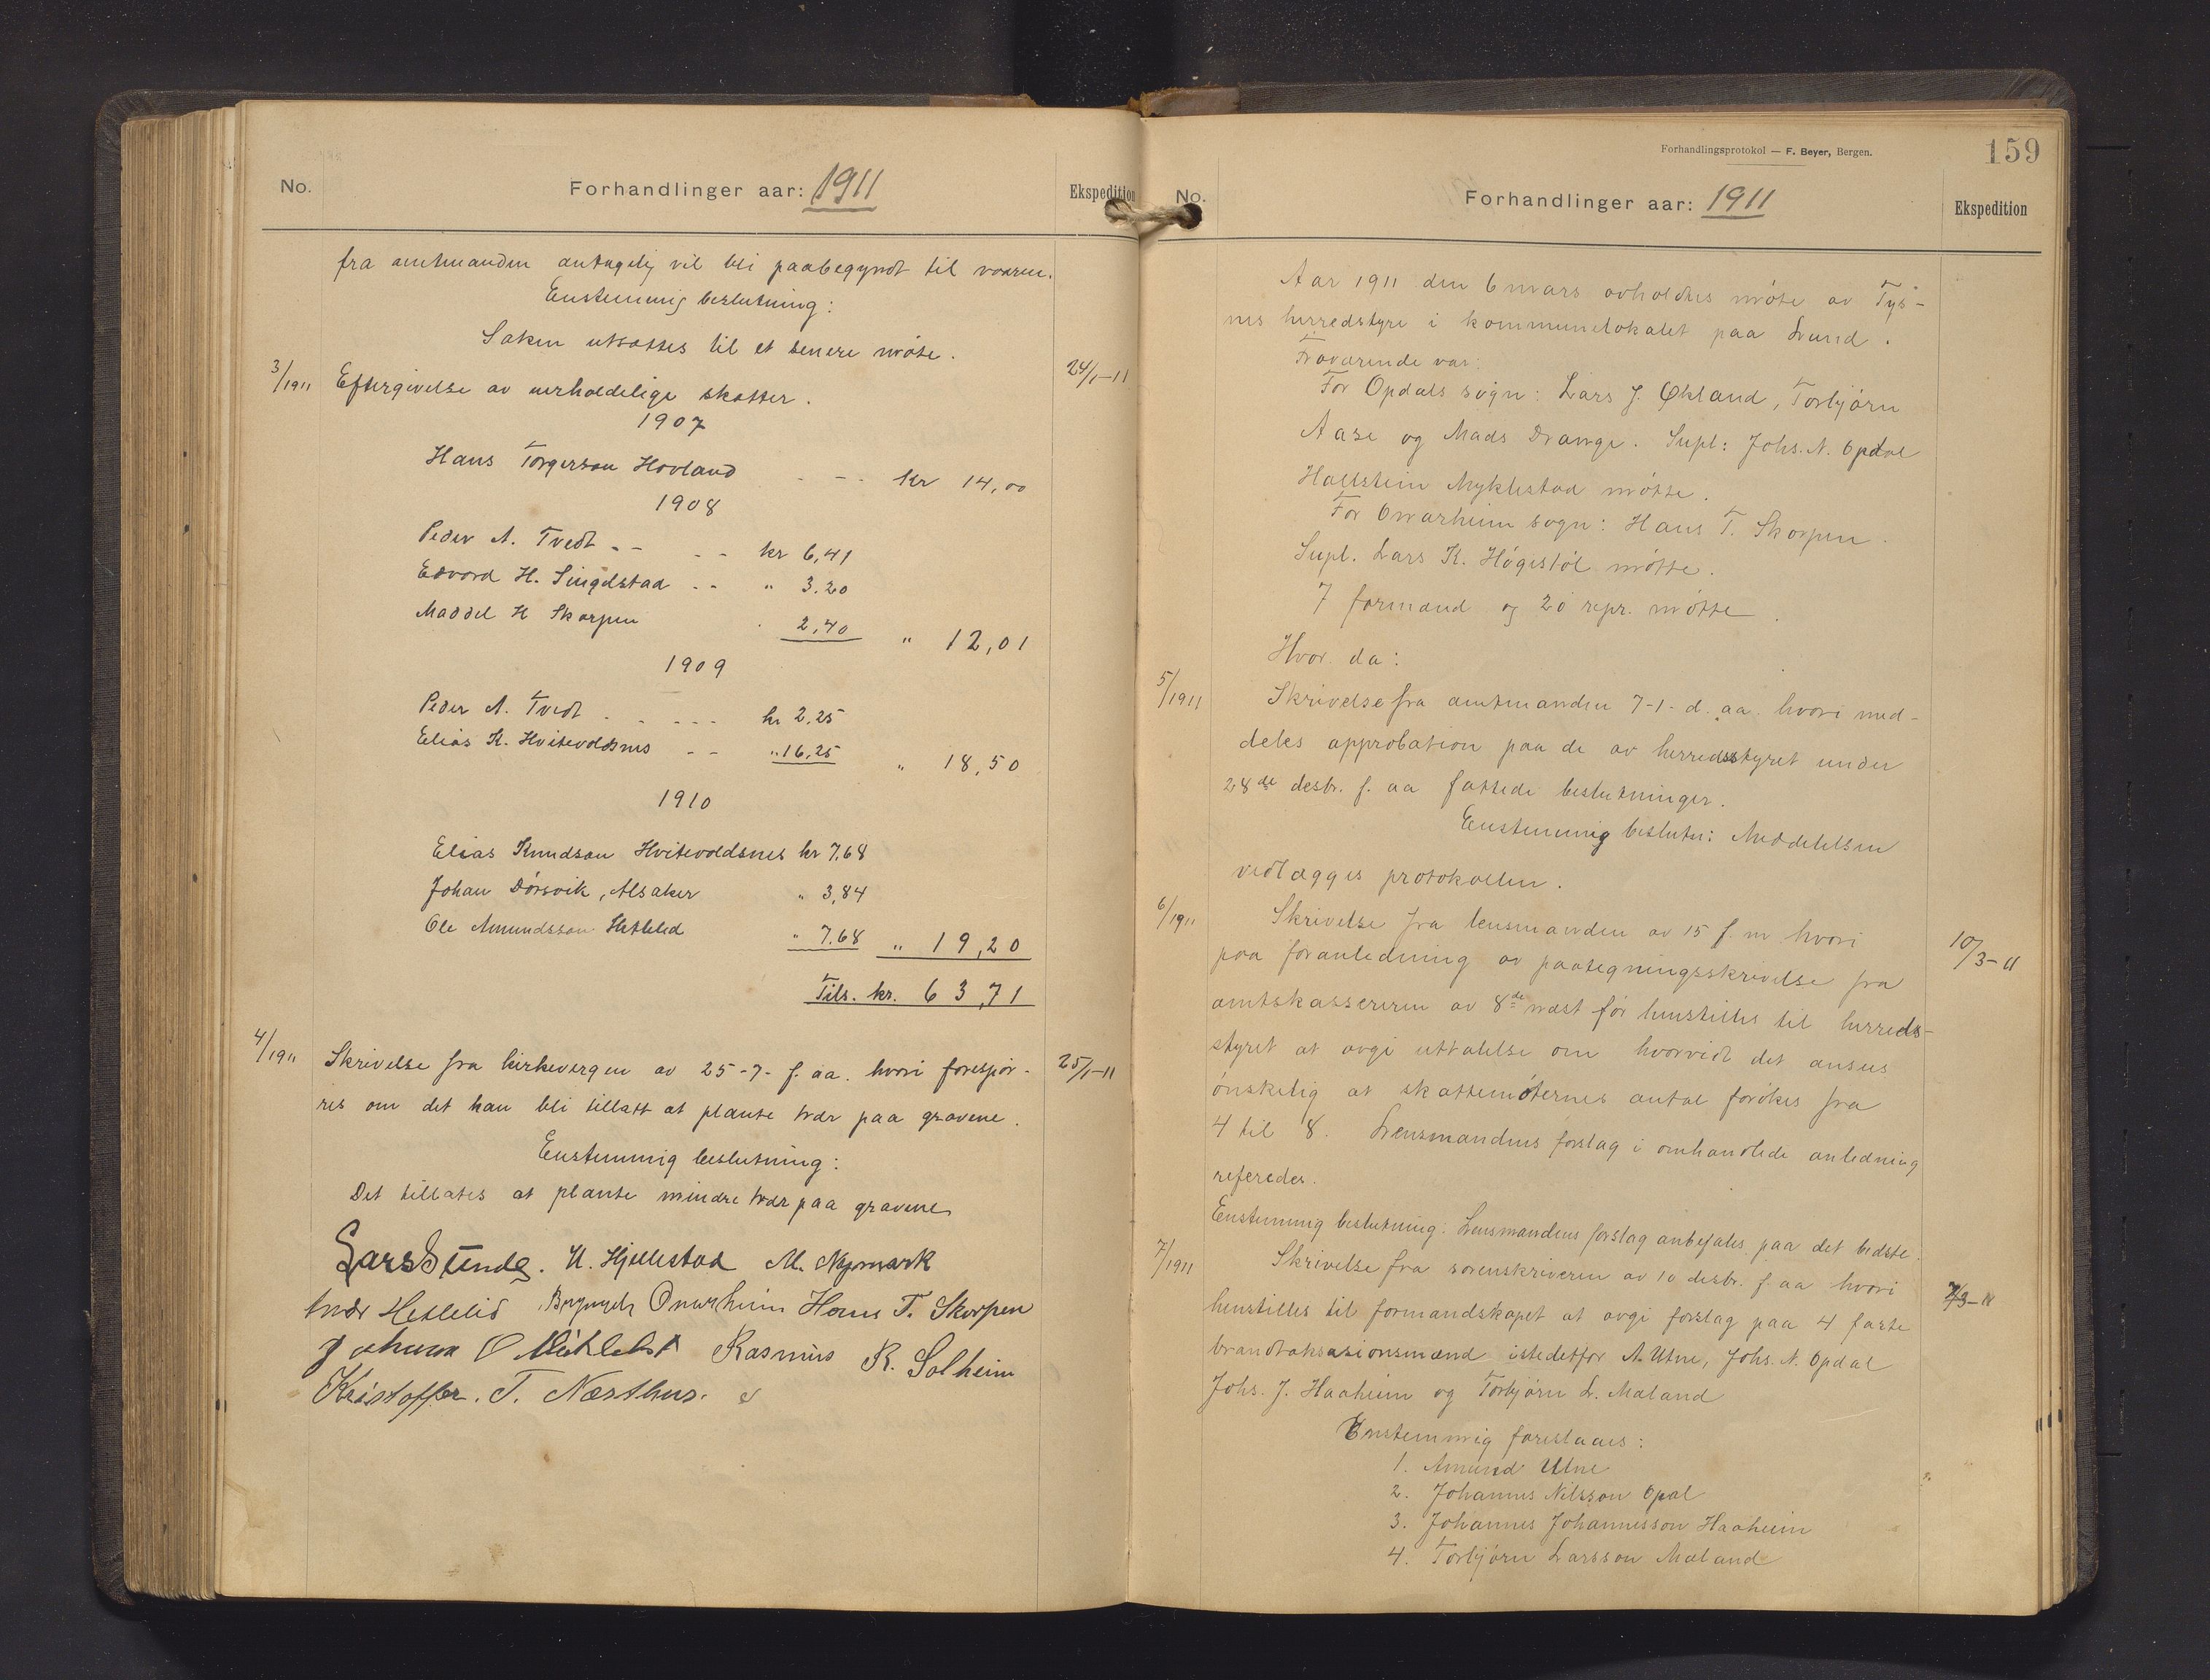 No.
Forhandlinger aar: 1911
Ekspedition
fra amtmanden antagelig vil bli paabegyndt til vaaren.
Enstemmig beslutning:
Saken utsættes til et senere møte.
3/1911 Eftergivelse av uerholdelige skatter. 24/1-11
1907
Hans Torgerson Hovland - - kr 14,00
1908
Peder A. Tvedt - - - - kr 6,41
Edvard H. Singelstad - - " 3.20
Maddel H Skorpen 2,40 " 12,01
1909
Peder A. Tvedt - - - - kr 2,25
Elias K. Hvitevoldsnes - - " 16,25 " 18,50
1910
Elias Knudson Hvitevoldsnes kr 7.68
Johan Dørsvik, Alsaker " 3,84
Ole Amundsson Hetleled " 7.68 " 19,20
Tils. kr. 63,71
4/1911 Skrivelse fra kirkevergen av 25-7- f. aa. hvori forespør- 25/1-11
res om det kan bli tillatt at plante trær paa gravene.
Enstemmig beslutning:
Det tillates at plante mindre trær paa gravene
Lars Stunde. H. Hjellestad M. Nymark
Iver Hetlelid Brynjulf Onarheim Hans T. Skorpen
Johan O Rasmus R. Solheim
Kristoffer. T. Næsthus.
Forhandlingsprotokol — F. Beyer, Bergen.
159
No.
Forhandlinger aar: 1911
Ekspedition
Aar 1911 den 6 mars avholdtes møte av Tys-
nes herredstyre i kommunelokalet paa Lund.
Fraværende var:
For Opdals sogn: Lars J. Økland, Torbjørn
Aase og Mads Drange. Supl: Johs. N. Opdal
Hallstein Myklestad møtte.
For Onarheim sogn: Hans T. Skorpen.
Supl. Lars K. Høgistøl møtte.
7 formænd og 20 repr. møtte.
Hvor da:
5/1911 Skrivelse fra amtmanden 7-1- d. aa. hvori med-
deles approbation paa de av herredsstyret under
28de desbr. f. aa fattede beslutninger.
Enstemmig beslutn: Meddelelsen
vedlægges protokollen.
6/1911 Skrivelse fra lensmanden av 15 f. m hvori 10/3-11
paa foranledning av paategningsskrivelse fra
amtskassereren av 8de næst før henstilles til herreds-
styret at avgi uttalelse om hvorvidt det ansees
ønskelig at skattemøternes antal forøkes fra
4 til 8. Lensmandens forslag i omhandlede anledning
refereder.
Enstemmig beslutning: Lensmandens forslag anbefales paa det bedste.
7/1911 Skrivelse fra sorenskriveren av 10 desbr. f. aa hvori 7/3-11
henstilles til formandskapet at avgi forslag paa 4 faste
brandtaksasionsmænd istedetfor A. Utne, Johs. N. Opdal
Johs. J. Haaheim og Torbjørn L. Mæland
Enstemmig foreslaaes:
1. Amund Utne
2. Johannes Nilsson Opal
3. Johannes Johannesson Haaheim
4. Torbjørn Larsson Mæland